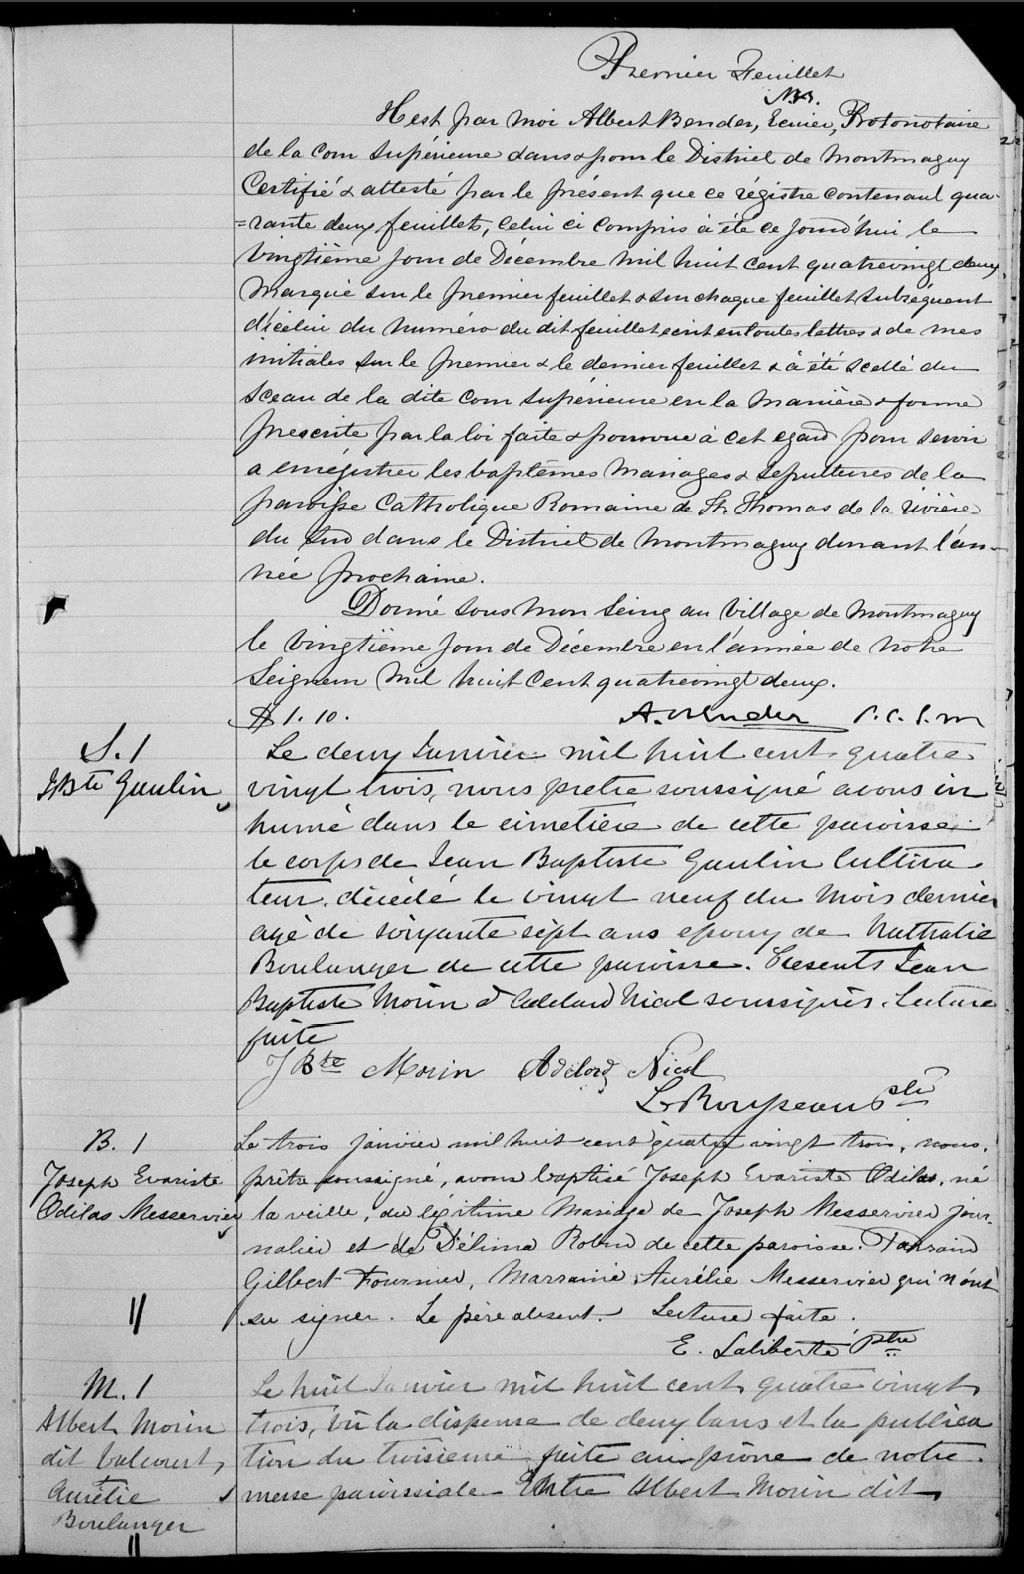 Premier Feuillet
Il est par moi Albert Bender, Ecuier, Protonotaire
de la Cour Supérieure dans & pour le District de Montmagny
Certifié & attesté par le présent que ce régistre contenant qua-
=rante deux feuillets, celui ci compris à été ce jourd'hui le
vingtième jour de Décembre mil huit cent quatrevingt deux,
Marqué sur le premier feuillet & sur chaque feuillet subséquent
d'icelui du numéro du dit feuillet ecrit en toutes lettres & de mes
initiales sur le premier & le dernier feuillet & à été scellé du
Sceau de la dite Cour Supérieure en la manière & forme
prescrite par la loi faite & pourvue à cet egard pour servir
a enrégistrer les baptêmes Mariages & Sepultures de la
paroisse Catholique Romaine de St. Thomas de la rivière
du Sud dans le District de Montmagny durant l'an-
née prochaine.
Donné sous mon Seing au Village de Montmagny
le vingtième jour de Décembre en l'année de notre
Seigneur Mil huit Cent quatrevingt deux.
$1.10. A. Bender P.C.S.M
S. 1
JBte Gaulin
Le deux Janvier mil huit cent quatre
vingt trois, nous pretre soussigné avons in
humé dans le cimetière de cette paroisse
le corps de Jean Baptiste Gaulin Cultiva
teur, décédé le vingt neuf du mois dernier
agé de soixante sept ans epoux de Nathalie
Boulanger de cette paroisse. Présents Jean
Baptiste Morin & Adelard Nicol soussignés. Lecture
faite
J Bte Morin Adelard Nicol
L. Rousseau Ptre
B. 1
Joseph Evariste
Odilas Messervier
Le trois janvier mil huit cent quatre vingt trois, nous,
prêtre soussigné, avons baptisé Joseph Evariste Odilas, né
la veille, du légitime mariage de Joseph Messervier jour-
nalier et de Délima Robin de cette paroisse. Parrain
Gilbert Fournier, Marraine Aurélie Messervier qui n'ont
su signer. Le père absent. Lecture faite.
E. Laliberté Ptre
M. 1
Albert Morin
dit Valcourt,
Aurélie
Boulanger
Le huit Janvier mil huit cent quatre vingt
trois, vû la dispense de deux bans et la publica
tion du troisieme faite au prône de notre
messe paroissiale - Entre Albert Morin dit